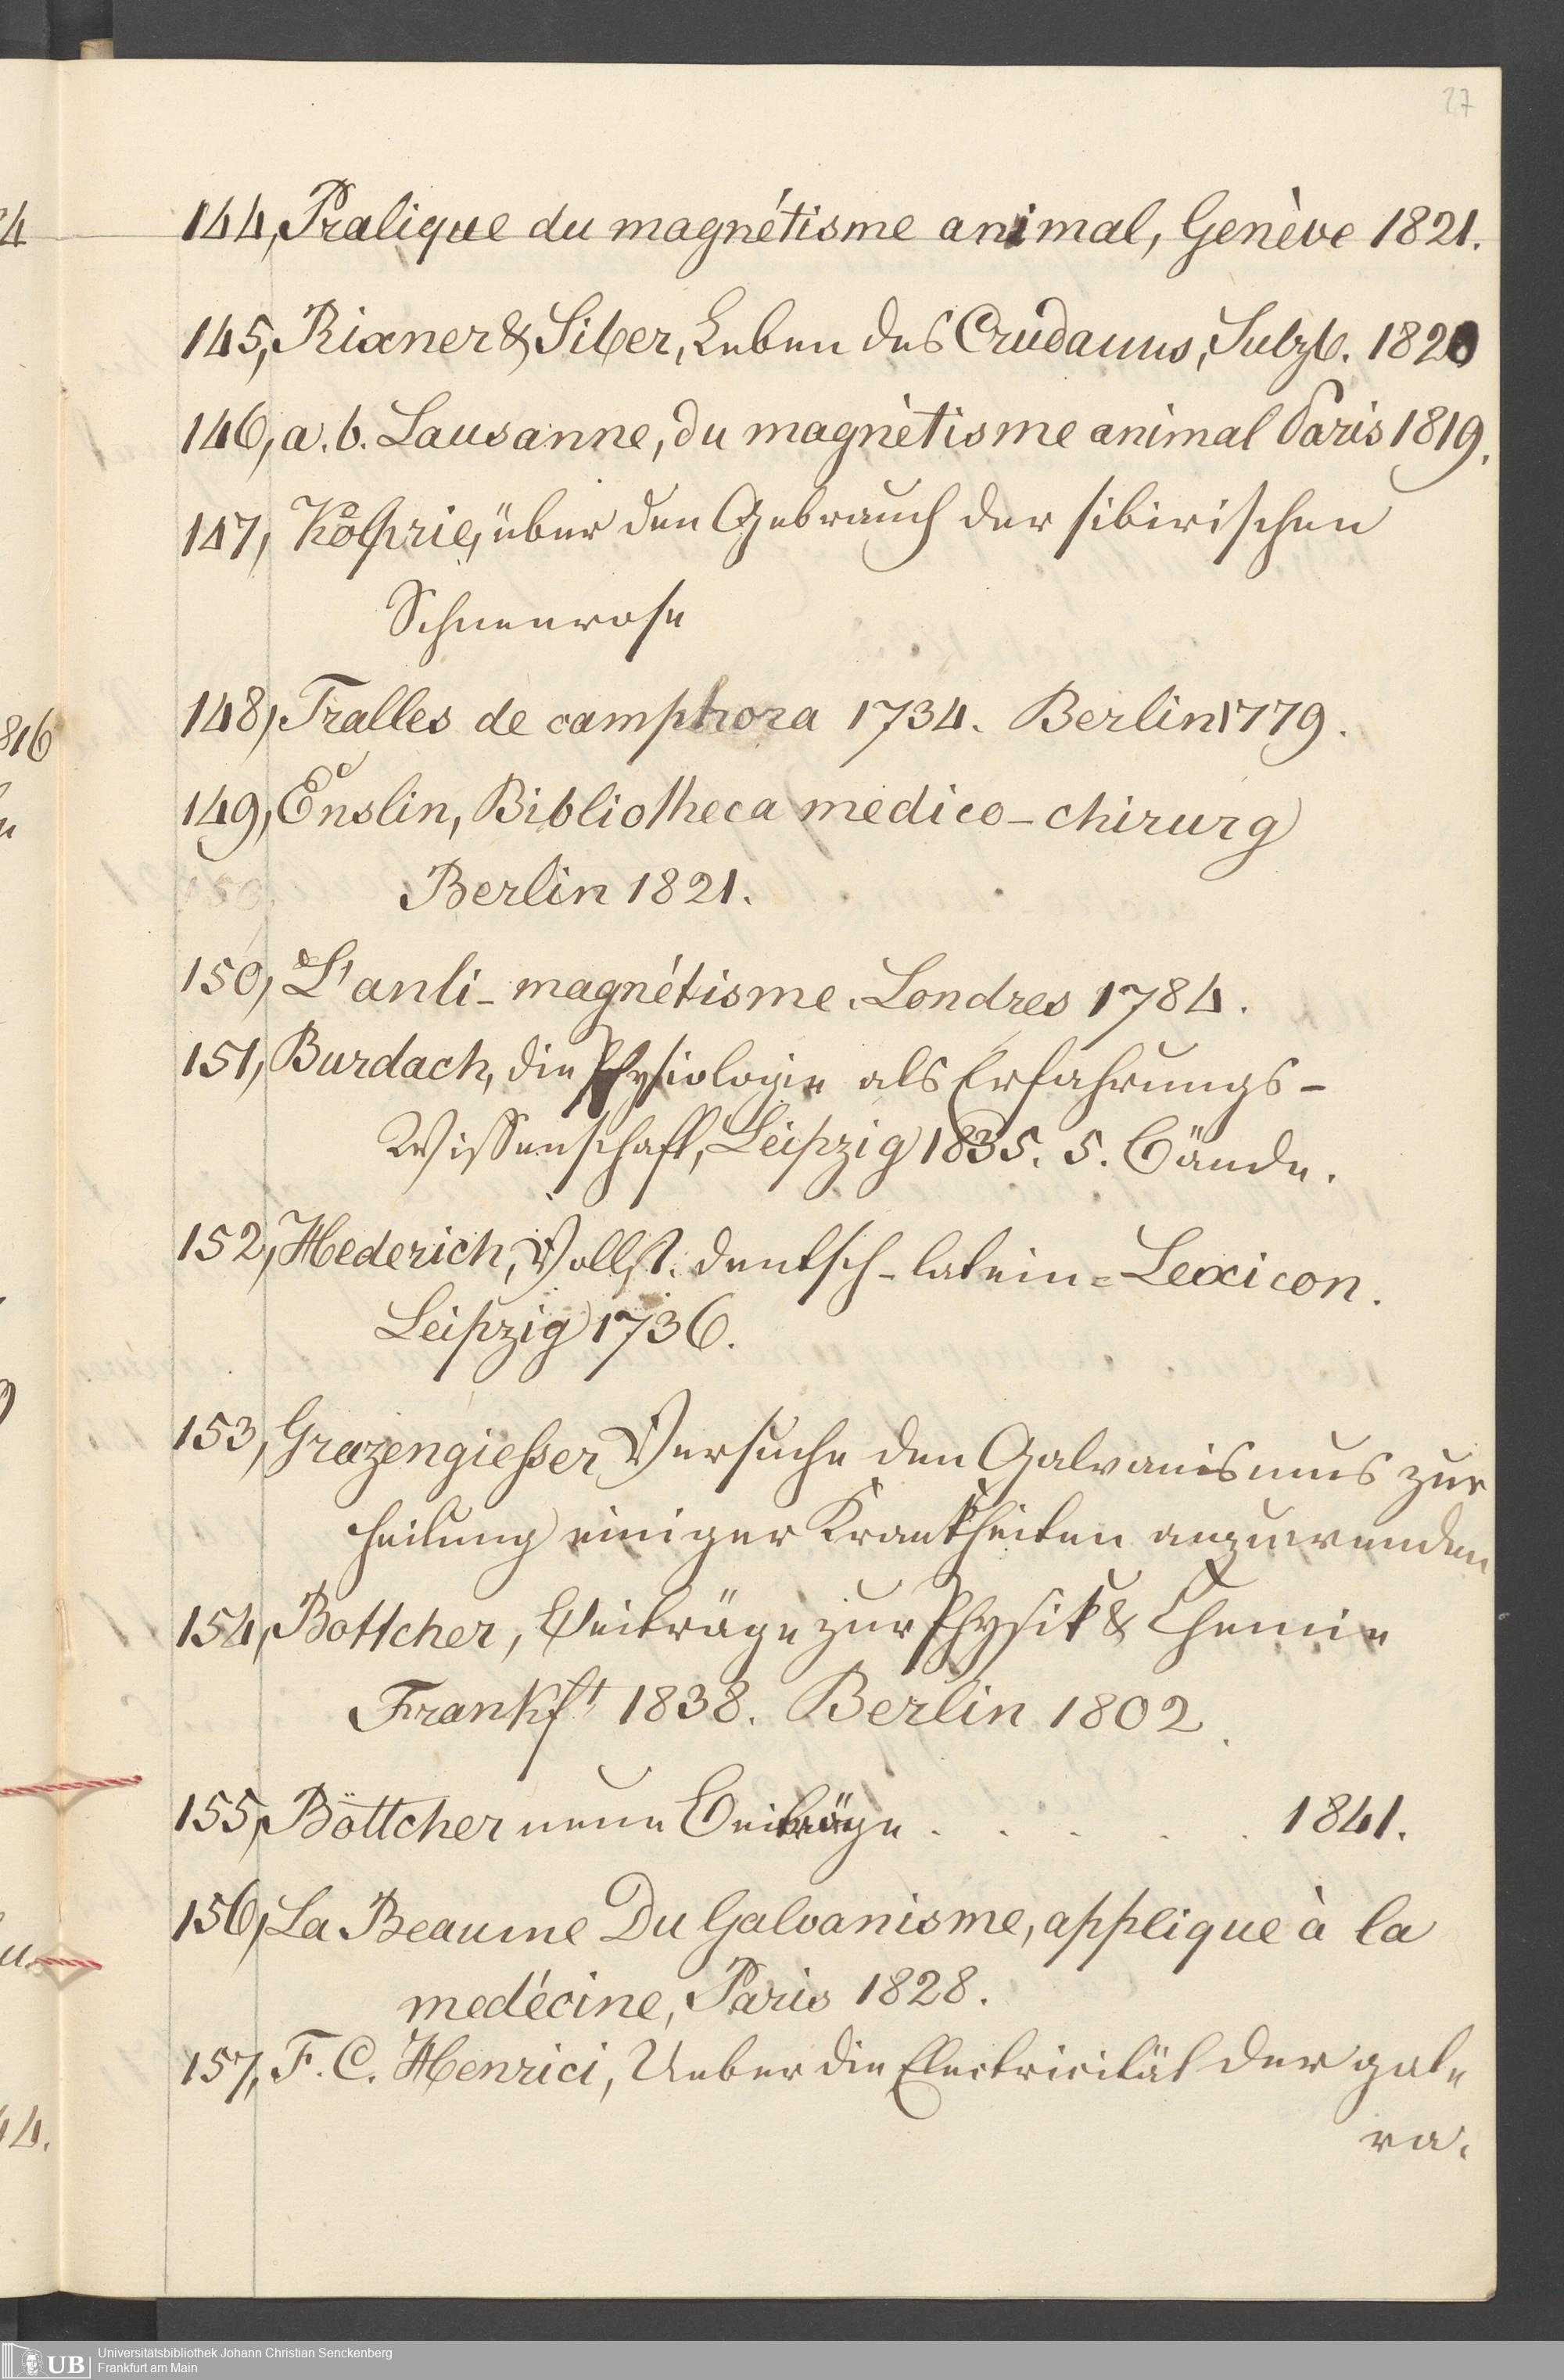 27
144, Pralique du magnétisme animal, Genève 1821.
145, Rixner & Siber, Leben des Crudanus, Sulzb. 1820
146, a. b. Lausanne, du magnètisme animal Paris 1819.
147, Kölprie, über den Gebrauch der sibirischen
Schneerose
148, Tralles de camphora 1734. Berlin 1779.
149, Enslin, Bibliotheca medico-chirurg
150,
Berlin 1821.
150, L'anli-magnétisme. Londres 1784.
151, Burdach, die Physiologie als Erfahrungs-
Wissenschaft, Leipzig 1835. 5. Bände.
152, Hederich, Vollst. deutsch-latein=Lexicon.
Leipzig 1736.
153, Grazengiesser Versuche den Galvanismus zur
Heilung einiger Krankheiten anzuwenden
154, Bottcher, Beiträge zur Physik & Chemie
Frankft 1838. Berlin 1802.
155, Böttcher neue Beiträge . . . . . 1841.
156, La Beaume Du Galvanisme, applique à la
medécine, Paris 1828.
157, F. C. Henrici, Ueber die Electricität der gal=
va.
816
14.
UB Universitätsbibliothek Johann Christian Senckenberg
Frankfurt am Main